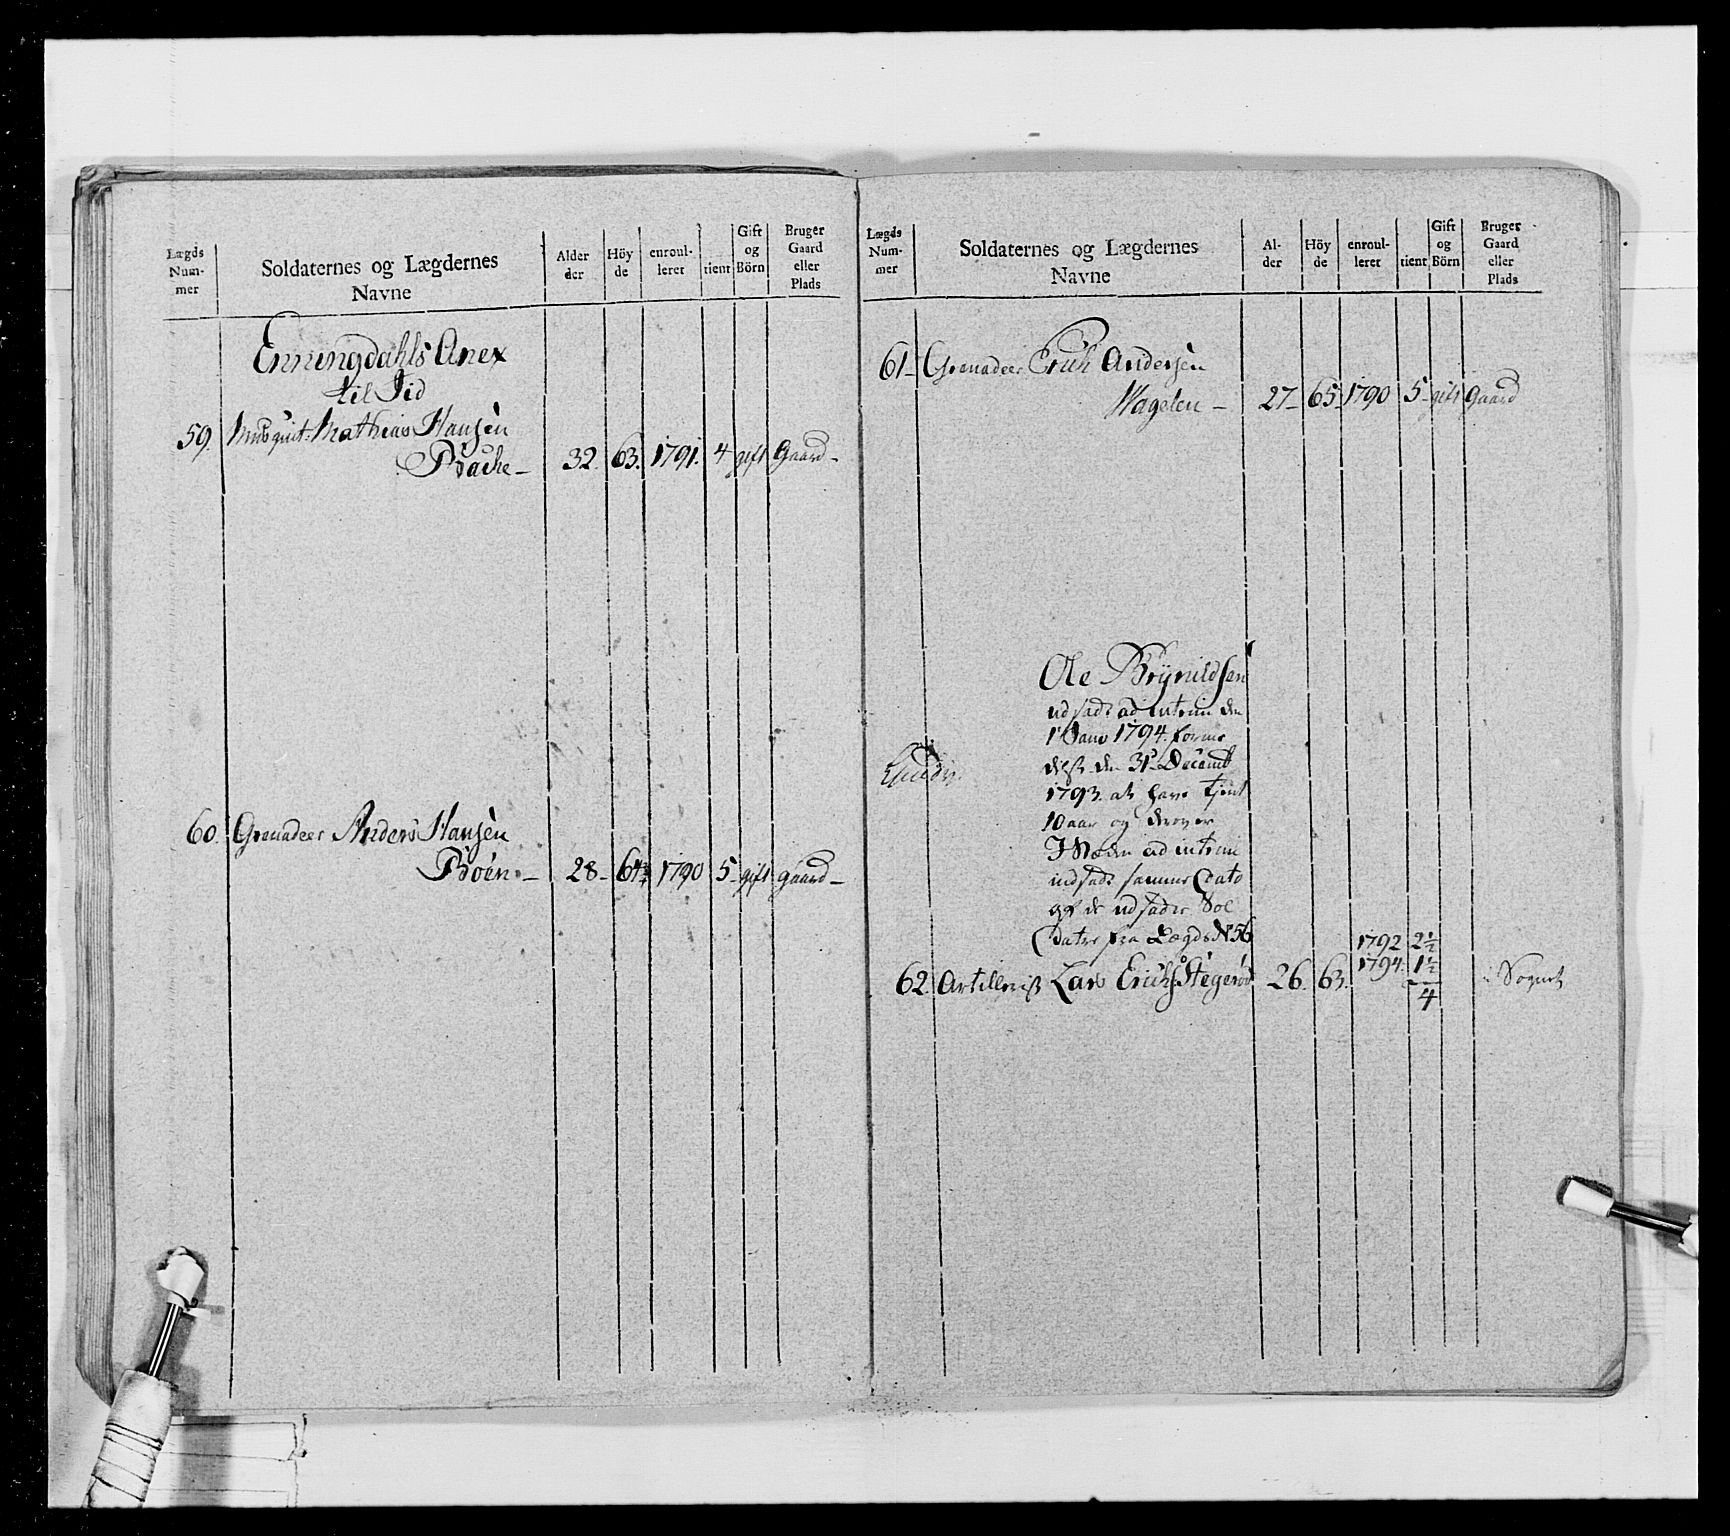 Lægds
Num-
mer
Soldaternes og Lægdernes
Navne
Alder
der
Höy
de
enroul-
leret
tient
Gift
og
Börn
Bruger
Gaard
eller
Plads
Enningdahls Anex
til Jid
59. Musquet: Mathias Hansen
Bache - 32. 63. 1791. 4 gift Gaard -
60. Grenadeer Anders Hansen
Böen - 28 - 64 1790 5 - gift gaard -
Lægds
Num-
mer
Soldaternes og Lægdernes
Navne
Al-
der
Höy
de
enroul-
leret
tient
Gift
og
Börn
Bruger
Gaard
eller
Plads
61 - Grenadeer Erich Andersen
Wagelen - 27 - 65 - 1790 5 - gift gaard
Ole Brynildsen
udsadt ad intrim den
1 Janv 1794. forme
delst den 31 Decemb
1793. at have tjent
10 aar og derover
I Steden ad intrim
indsadt samme Dato
af de udsadte Sol
dater fra Lægds No 56
1792 2½
62. Artillerist Lars Erichs. Stegerød 26. 63. 1794. 1½ i Sognet
4